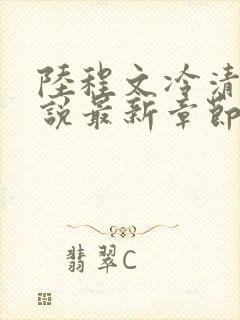 陸程文冷清
說最新章節
翡翠C